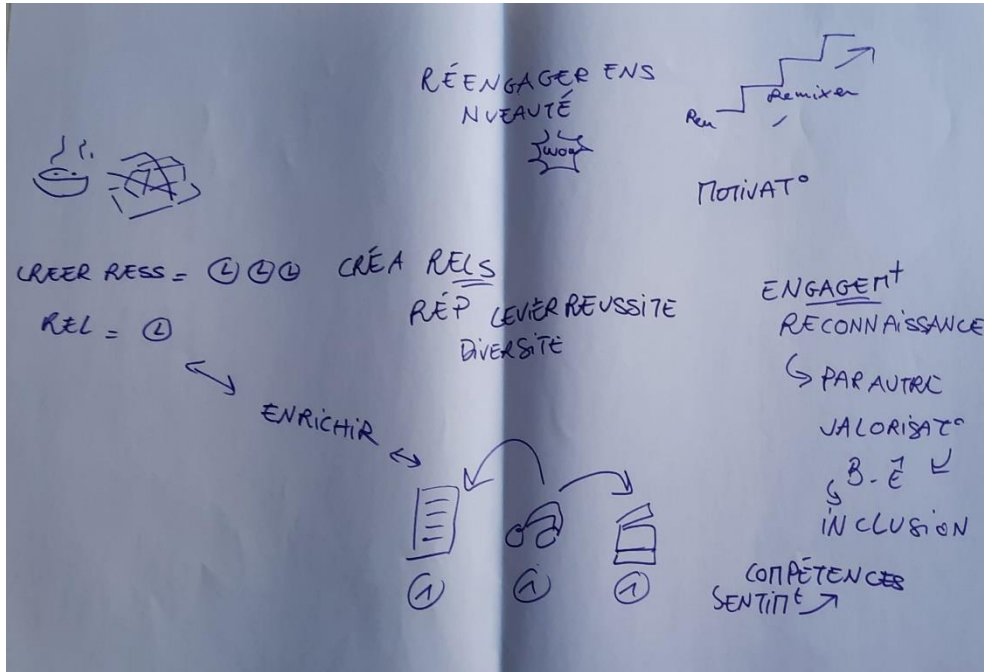 RÉENGAGER ENS
NVEAUTÉ
WOW
Remixer
MOTIVAT°
CREER RESS = L L L
REL = L
CRÉA RELS
RÉP LEVIER REUSSITE
DIVERSITÉ
ENRICHIR
1 1 1
ENGAGEMt
RECONNAISSANCE
PAR AUTRE
VALORISAT°
B-Ê
INCLUSION
COMPÉTENCES
SENTIMt